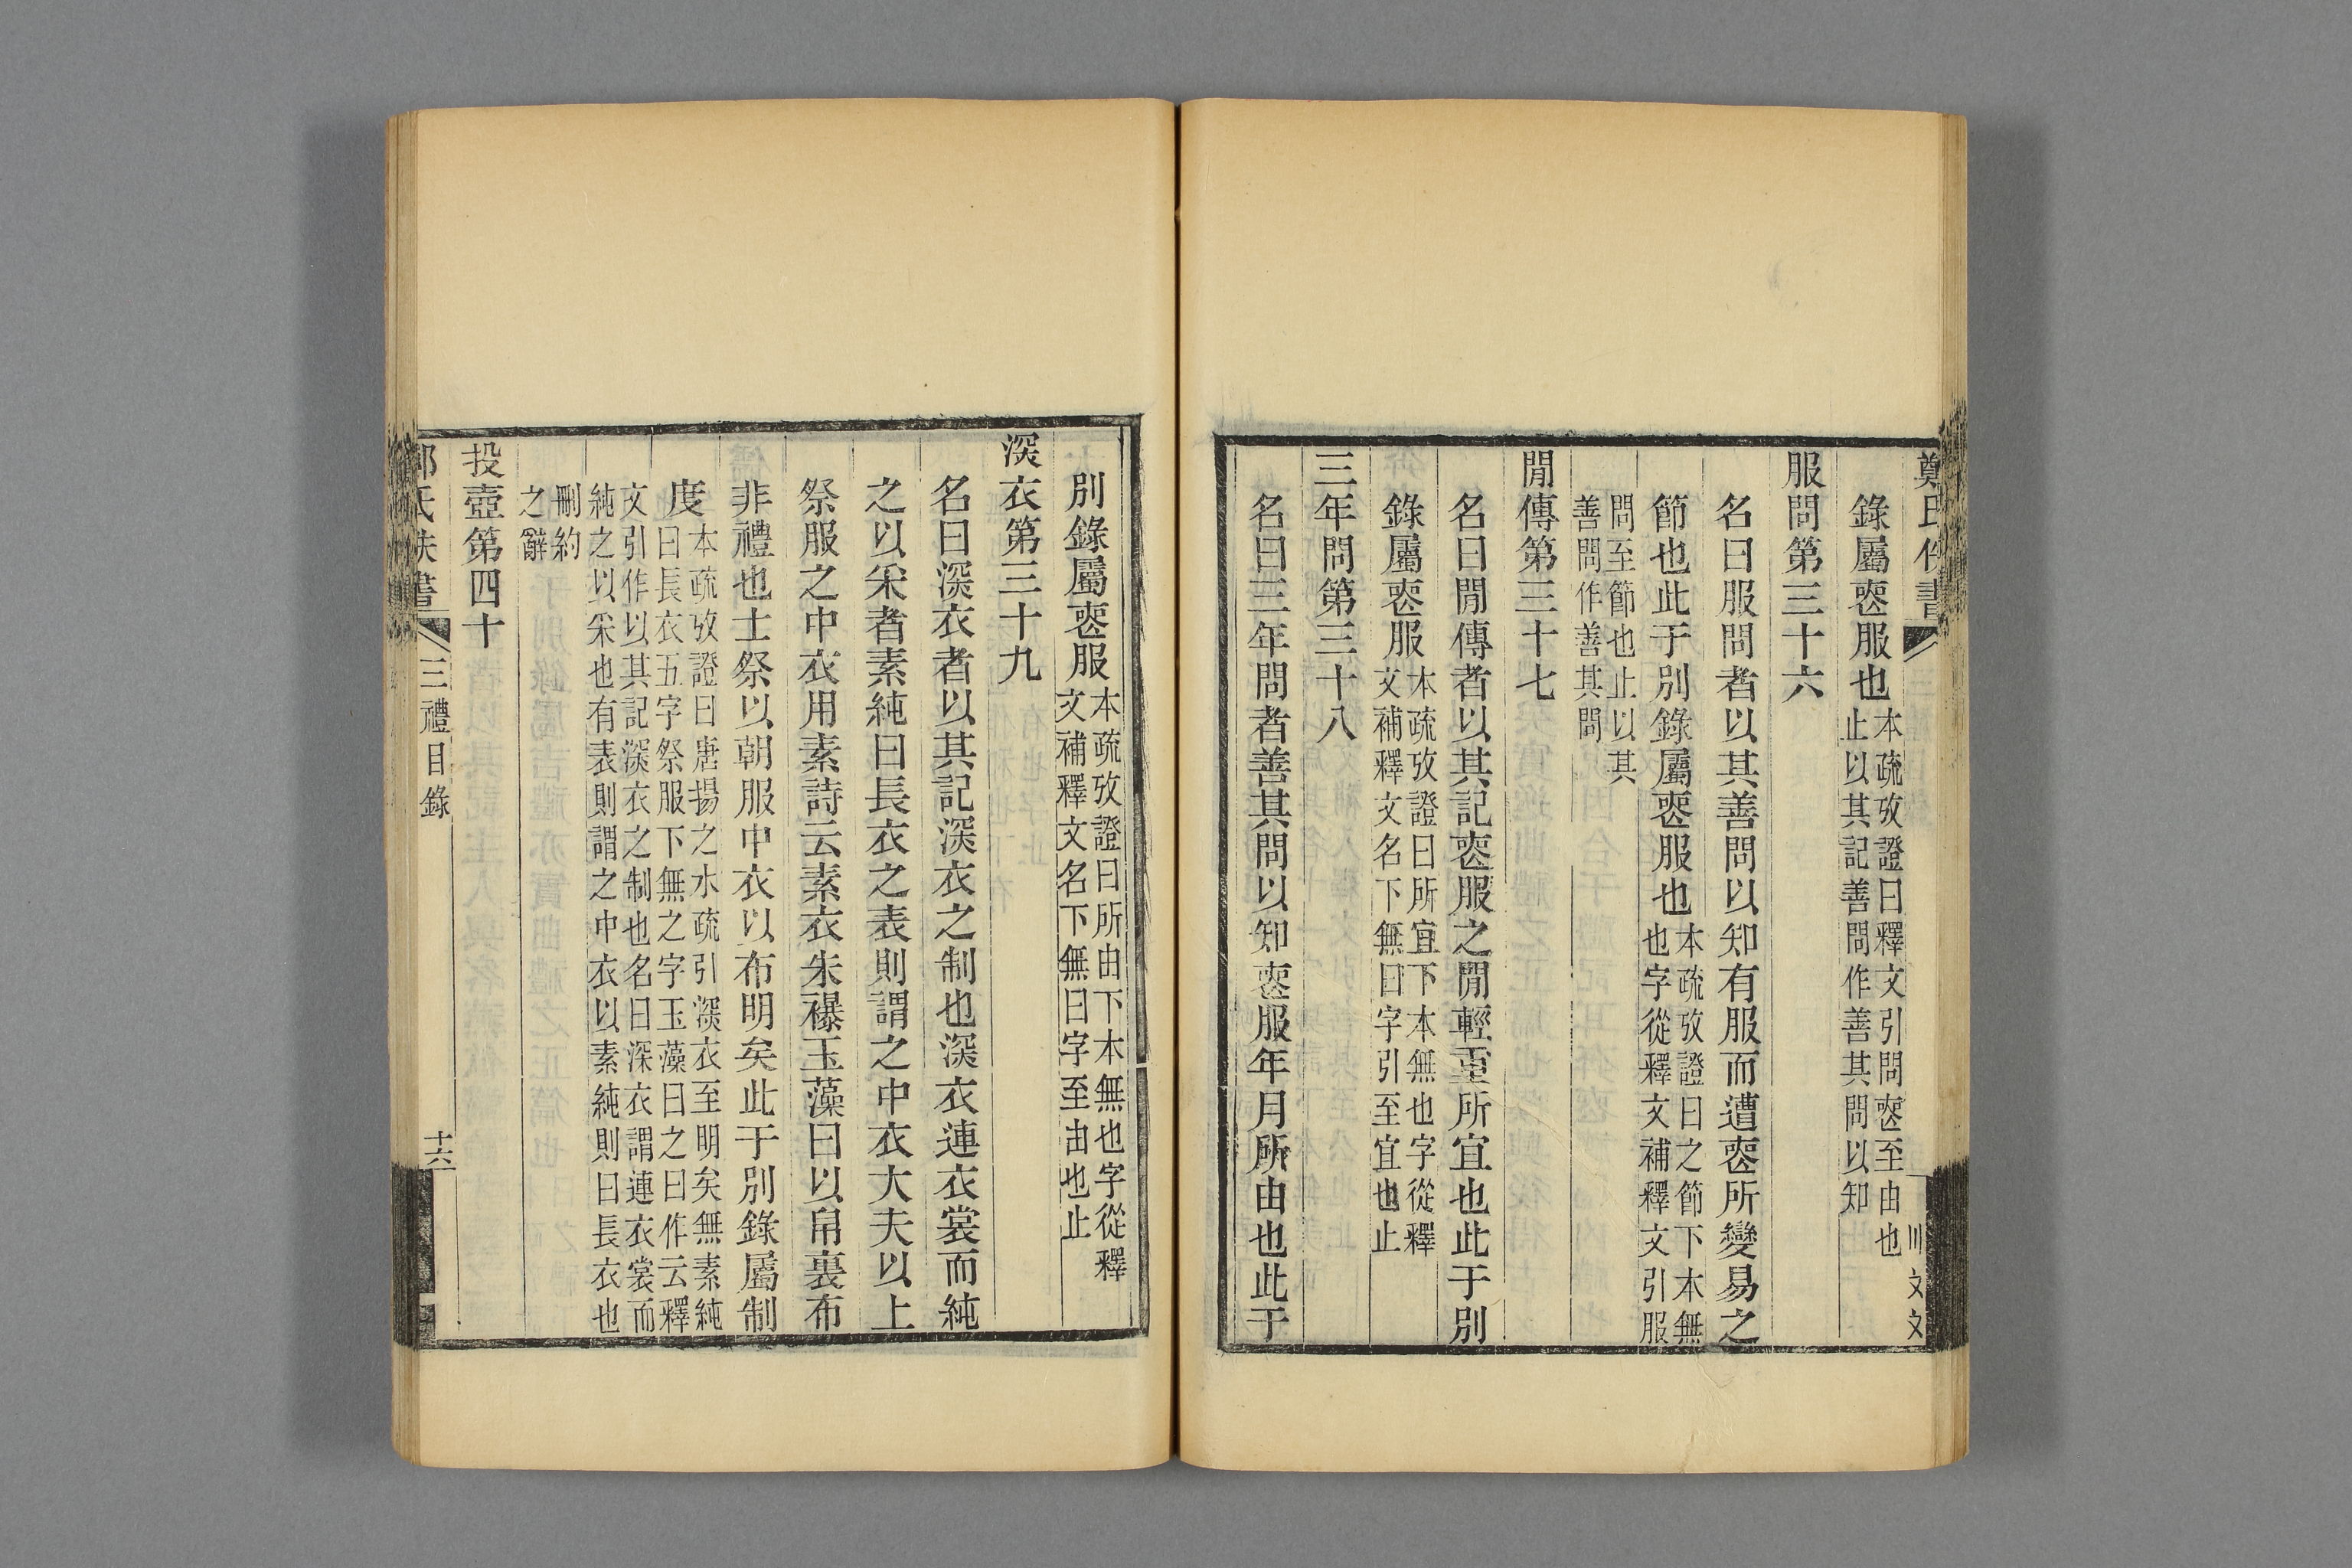 鄭氏佚書
錄屬喪服也本疏攷證曰釋文引問喪至由也
止以其記善問作善其問以知
服問第三十六
名曰服問者以其善問以知有服而遭喪所變易之
節也此于別錄屬喪服也本疏攷證曰之節下本無
也字從釋文補釋文引服
問至節也止以其
善問作善其問
閒傳第三十七
名曰閒傳者以其記喪服之閒輕重所宜也此于別
錄屬喪服本疏攷證曰所宜下本無也字從釋
文補釋文名下無曰字引至宜也止
三年問第三十八
名曰三年問者善其問以知喪服年月所由也此于
別錄屬喪服本疏攷證曰所由下本無也字從釋
文補釋文名下無曰字至由也止
深衣第三十九
名曰深衣者以其記深衣之制也深衣連衣裳而純
之以采者素純曰長衣之表則謂之中衣大夫以上
祭服之中衣用素詩云素衣朱襮玉藻曰以帛裏布
非禮也士祭以朝服中衣以布明矣此于別錄屬制
度本疏攷證曰唐揚之水疏引深衣至明矣無素純
曰長衣五字祭服下無之字玉藻曰之曰作云釋
文引作以其記深衣之制也名曰深衣謂連衣裳而
純之以采也有表則謂之中衣以素純則曰長衣也
刪約
之辭
投壺第四十
氏佚書
三禮目錄
十六